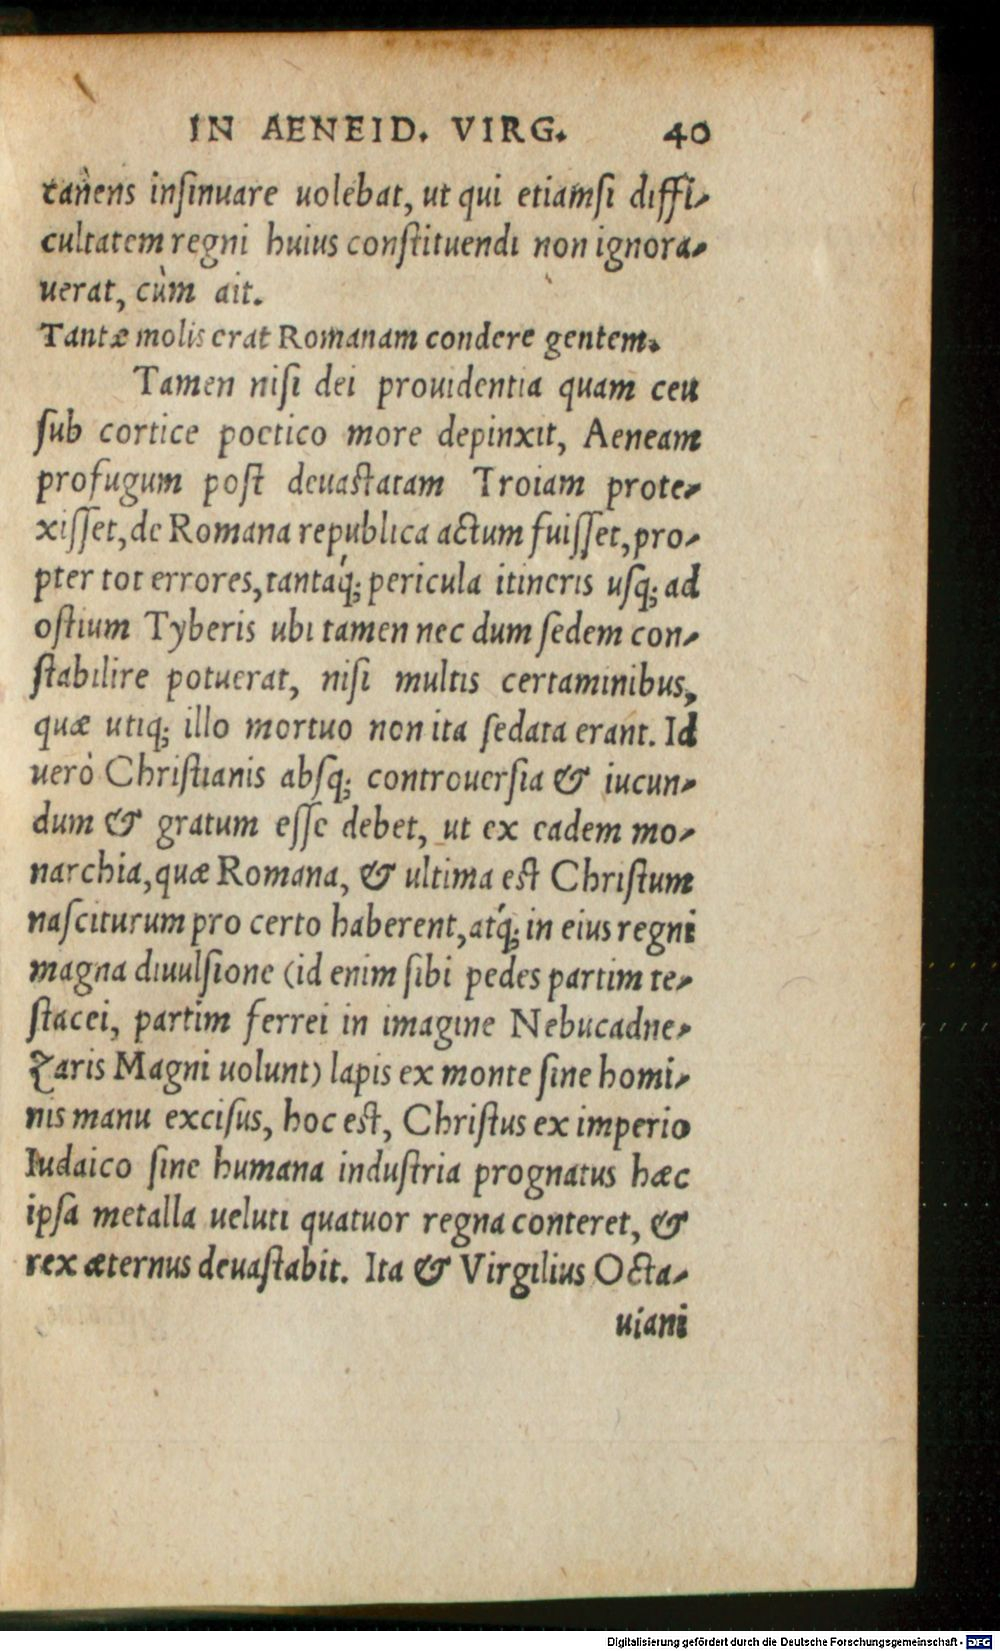 IN AENEID. VIRG. 40
canens insinuare uolebat, ut qui etiamsi diffi-
cultatem regni huius constituendi non ignora-
uerat, cùm ait.
Tantæ molis erat Romanam condere gentem.
Tamen nisi dei prouidentia quam ceu
sub cortice poetico more depinxit, Aeneam
profugum post deuastatam Troiam prote-
xisset, de Romana republica actum fuisset, pro-
pter tot errores, tantaq́; pericula itineris usq; ad
ostium Tyberis ubi tamen nec dum sedem con-
stabilire potuerat, nisi multis certaminibus,
quæ utiq; illo mortuo non ita sedata erant. Id
uerò Christianis absq; controuersia & iucun-
dum & gratum esse debet, ut ex eadem mo-
narchia, quæ Romana, & ultima est Christum
nasciturum pro certo haberent, atq́; in eius regni
magna diuulsione (id enim sibi pedes partim te-
stacei, partim ferrei in imagine Nebucadne-
zaris Magni uolunt) lapis ex monte sine homi-
nis manu excisus, hoc est, Christus ex imperio
Iudaico sine humana industria prognatus hæc
ipsa metalla ueluti quatuor regna conteret, &
rex æternus deuastabit. Ita & Virgilius Octa-
uiani
Digitalisierung gefördert durch die Deutsche Forschungsgemeinschaft - DFG